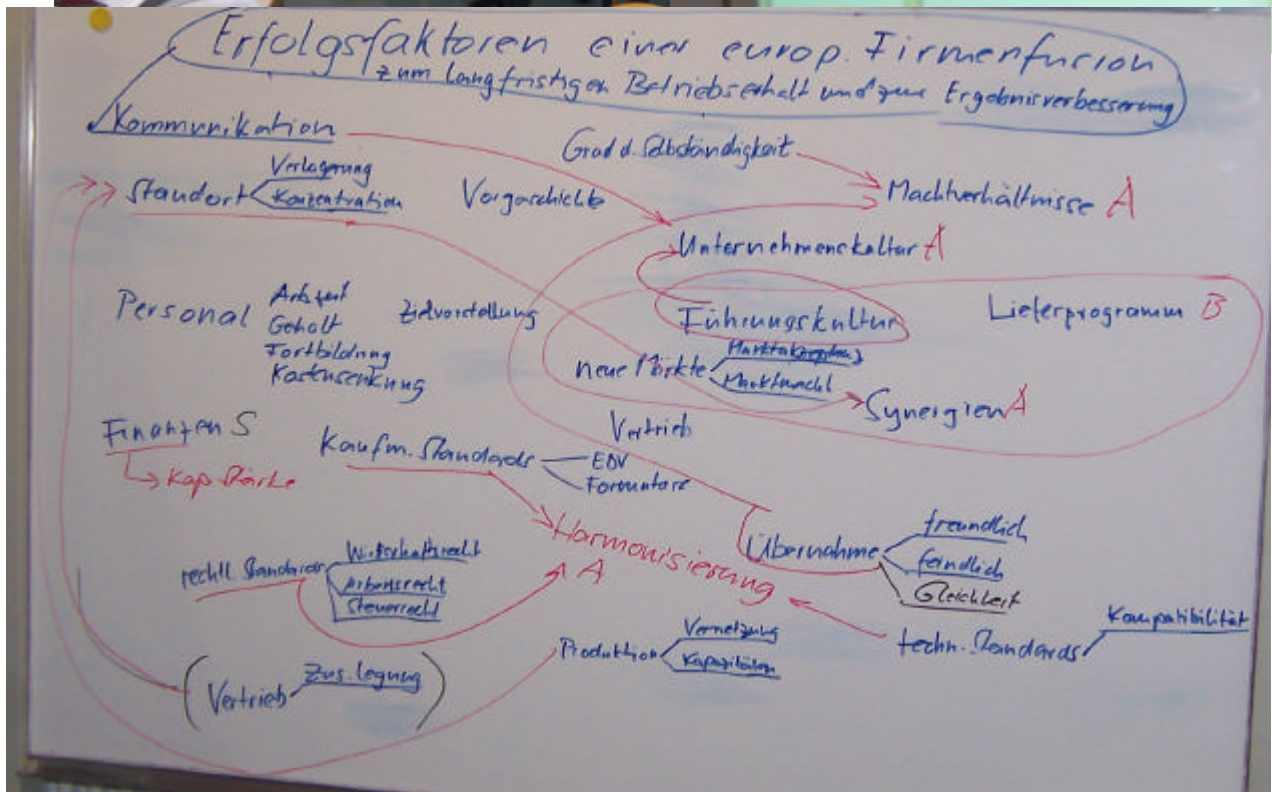 Erfolgsfaktoren einer europ. Firmenfusion
zum langfristigen Betriebserhalt und zur Ergebnisverbesserung
Kommunikation
Grad d. Selbständigkeit
Standort
Verlagerung
Konzentration
Vorgeschichte
Machtverhältnisse A
Unternehmenskultur A
Personal
Arbzeit
Gehalt
Fortbildung
Kostensenkung
Zielvorstellung
Führungskultur
Lieferprogramm B
neue Märkte
Marktakzeptanz
Marktmacht
Synergien A
Finanzen S
Kap Stärke
Kaufm. Standards
EDV
Formulare
Vertrieb
Harmonisierung
A
Übernahme
freundlich
feindlich
Gleichheit
rechtl. Standards
Wirtschaftsrecht
Arbeitsrecht
Steuerrecht
Produktion
Vernetzung
Kapazitäten
techn. Standards
Kompatibilität
(Vertrieb
Zus.legung)